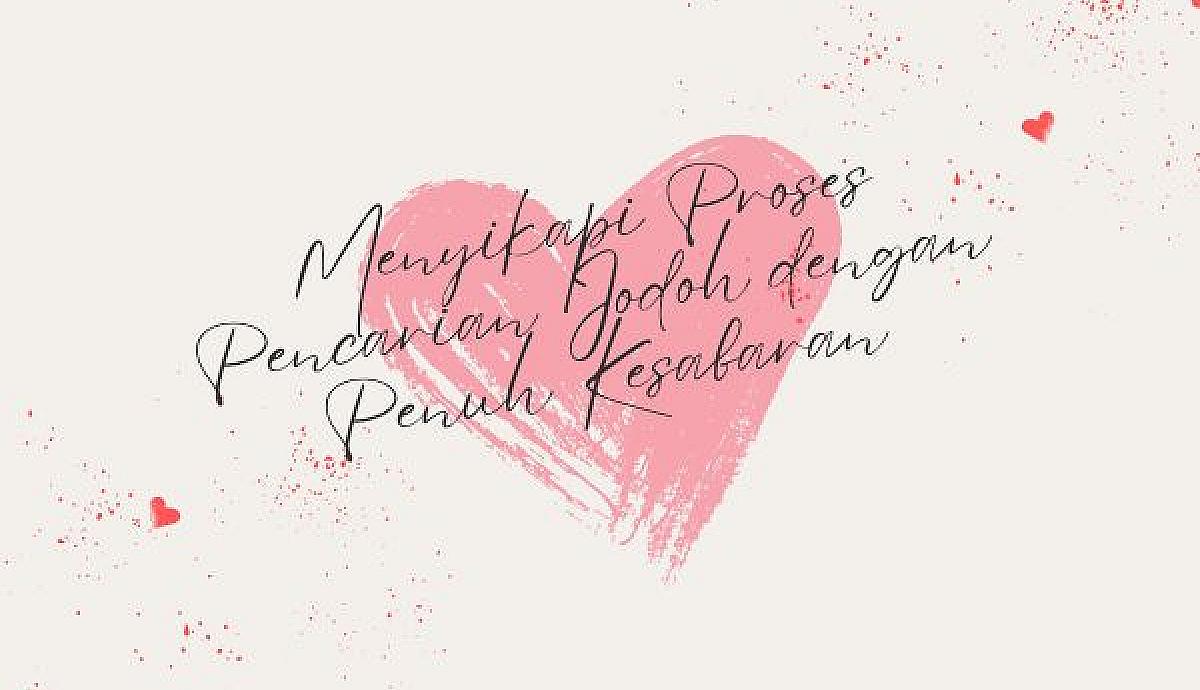 Menyikapi Proses
Pencarian Jodoh dengan
Penuh Kesabaran